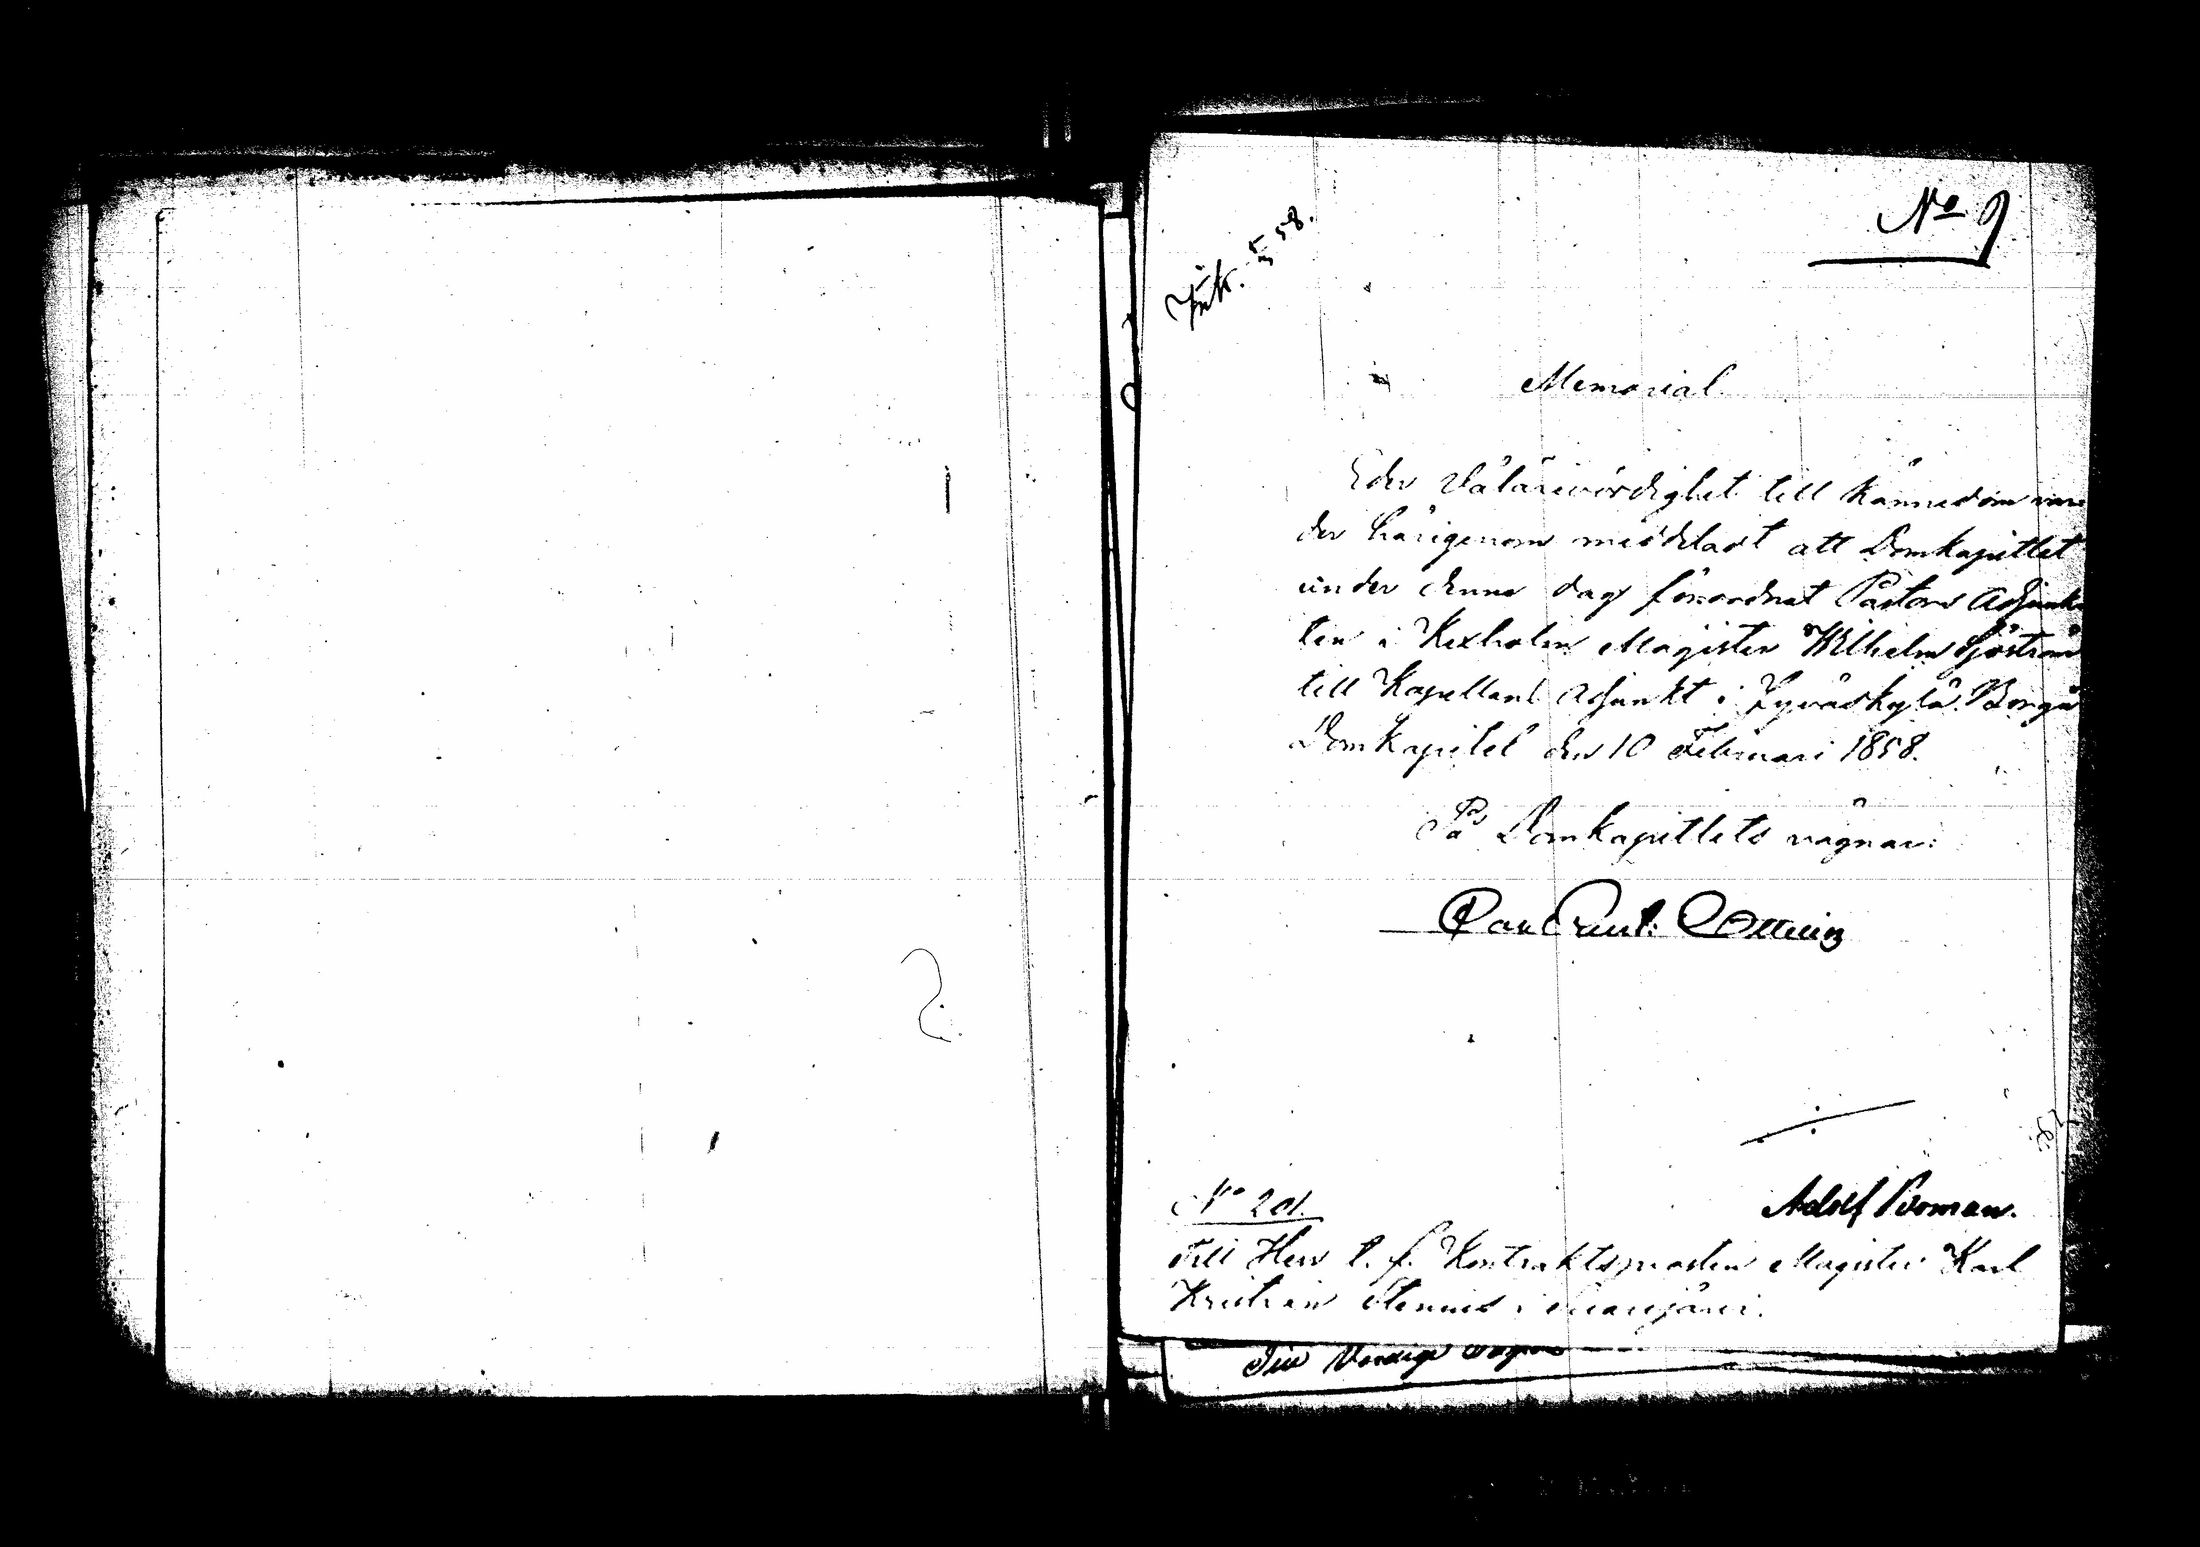 No 9
Ink. 5/3 58.
Memorial.
Eder Välärevördighet till kännedom var
der härigenom meddeladt att Domkapitlet
under denna dag förordnat Pastors Adjunk
ten i Kexholm Magister Wilhelm Sjöström
till Kapellans Adjunkt i Jyväskylä. Borgå
Domkapitel den 10 Februari 1858.
På Domkapitlets vägnar:
Adolf Boman.
No 201.
Till Herr t. f. Kontraktsprosten Magister Karl
Kristian Stenius i